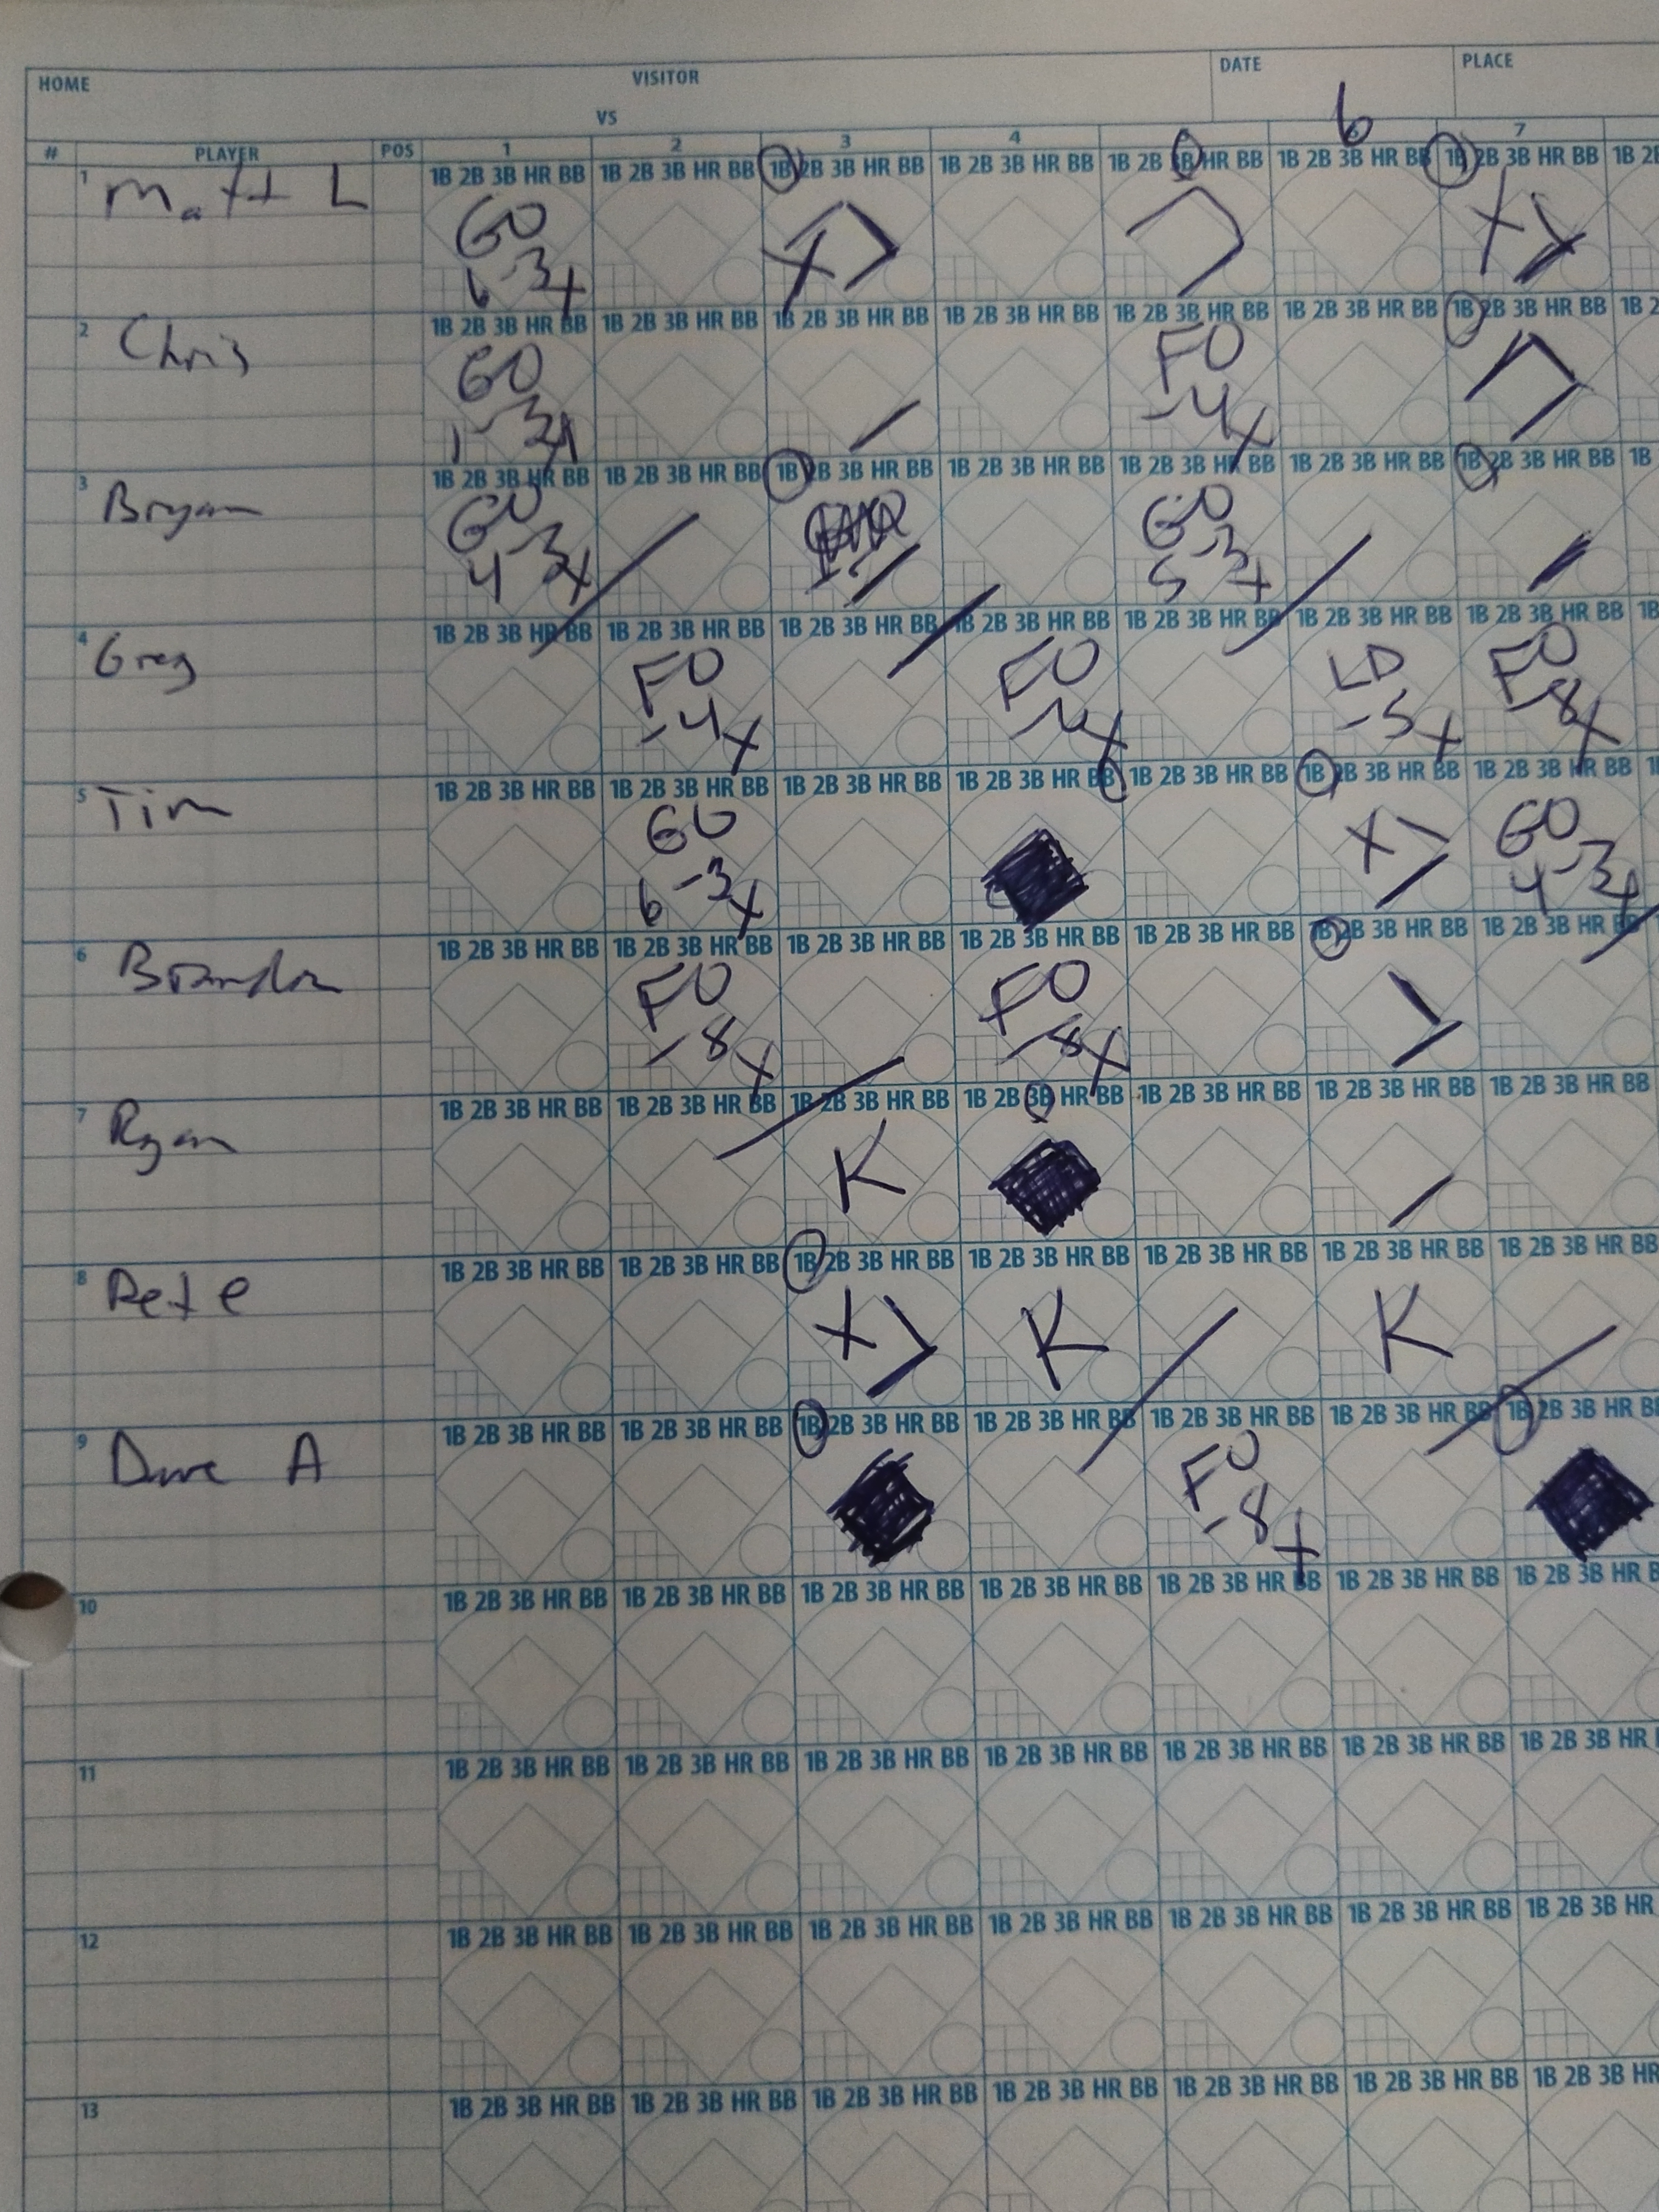 HOME VISITOR DATE PLACE
VS 6
# PLAYER POS 1 2 3 4 7
1 Matt L 1B 2B 3B HR BB 1B 2B 3B HR BB 1B 2B 3B HR BB 1B 2B 3B HR BB 1B 2B 3B HR BB 1B 2B 3B HR BB 1B 2B 3B HR BB 1B 2B
GO X X
6-3 X
2 Chris 1B 2B 3B HR BB 1B 2B 3B HR BB 1B 2B 3B HR BB 1B 2B 3B HR BB 1B 2B 3B HR BB 1B 2B 3B HR BB 1B 2B 3B HR BB 1B 2
GO FO
1-3 X -4 X
3 Bryan 1B 2B 3B HR BB 1B 2B 3B HR BB 1B 2B 3B HR BB 1B 2B 3B HR BB 1B 2B 3B HR BB 1B 2B 3B HR BB 1B 2B 3B HR BB 1B
GO GO
4-3 X 5-3 X
4 Greg 1B 2B 3B HR BB 1B 2B 3B HR BB 1B 2B 3B HR BB 1B 2B 3B HR BB 1B 2B 3B HR BB 1B 2B 3B HR BB 1B 2B 3B HR BB 1B
FO FO LD FO
-4 X X -5 X -8 X
5 Tim 1B 2B 3B HR BB 1B 2B 3B HR BB 1B 2B 3B HR BB 1B 2B 3B HR BB 1B 2B 3B HR BB 1B 2B 3B HR BB 1B 2B 3B HR BB
GO X GO
6-3 X 4-3 X
6 Brandon 1B 2B 3B HR BB 1B 2B 3B HR BB 1B 2B 3B HR BB 1B 2B 3B HR BB 1B 2B 3B HR BB 1B 2B 3B HR BB 1B 2B 3B HR BB
FO FO
-8 X -8 X
7 Ryan 1B 2B 3B HR BB 1B 2B 3B HR BB 1B 2B 3B HR BB 1B 2B 3B HR BB 1B 2B 3B HR BB 1B 2B 3B HR BB 1B 2B 3B HR BB
K
8 Pete 1B 2B 3B HR BB 1B 2B 3B HR BB 1B 2B 3B HR BB 1B 2B 3B HR BB 1B 2B 3B HR BB 1B 2B 3B HR BB 1B 2B 3B HR BB
X K K
9 Dave A 1B 2B 3B HR BB 1B 2B 3B HR BB 1B 2B 3B HR BB 1B 2B 3B HR BB 1B 2B 3B HR BB 1B 2B 3B HR BB 1B 2B 3B HR B
FO
-8 X
10 1B 2B 3B HR BB 1B 2B 3B HR BB 1B 2B 3B HR BB 1B 2B 3B HR BB 1B 2B 3B HR BB 1B 2B 3B HR BB 1B 2B 3B HR B
11 1B 2B 3B HR BB 1B 2B 3B HR BB 1B 2B 3B HR BB 1B 2B 3B HR BB 1B 2B 3B HR BB 1B 2B 3B HR BB 1B 2B 3B HR
12 1B 2B 3B HR BB 1B 2B 3B HR BB 1B 2B 3B HR BB 1B 2B 3B HR BB 1B 2B 3B HR BB 1B 2B 3B HR BB 1B 2B 3B HR
13 1B 2B 3B HR BB 1B 2B 3B HR BB 1B 2B 3B HR BB 1B 2B 3B HR BB 1B 2B 3B HR BB 1B 2B 3B HR BB 1B 2B 3B HR